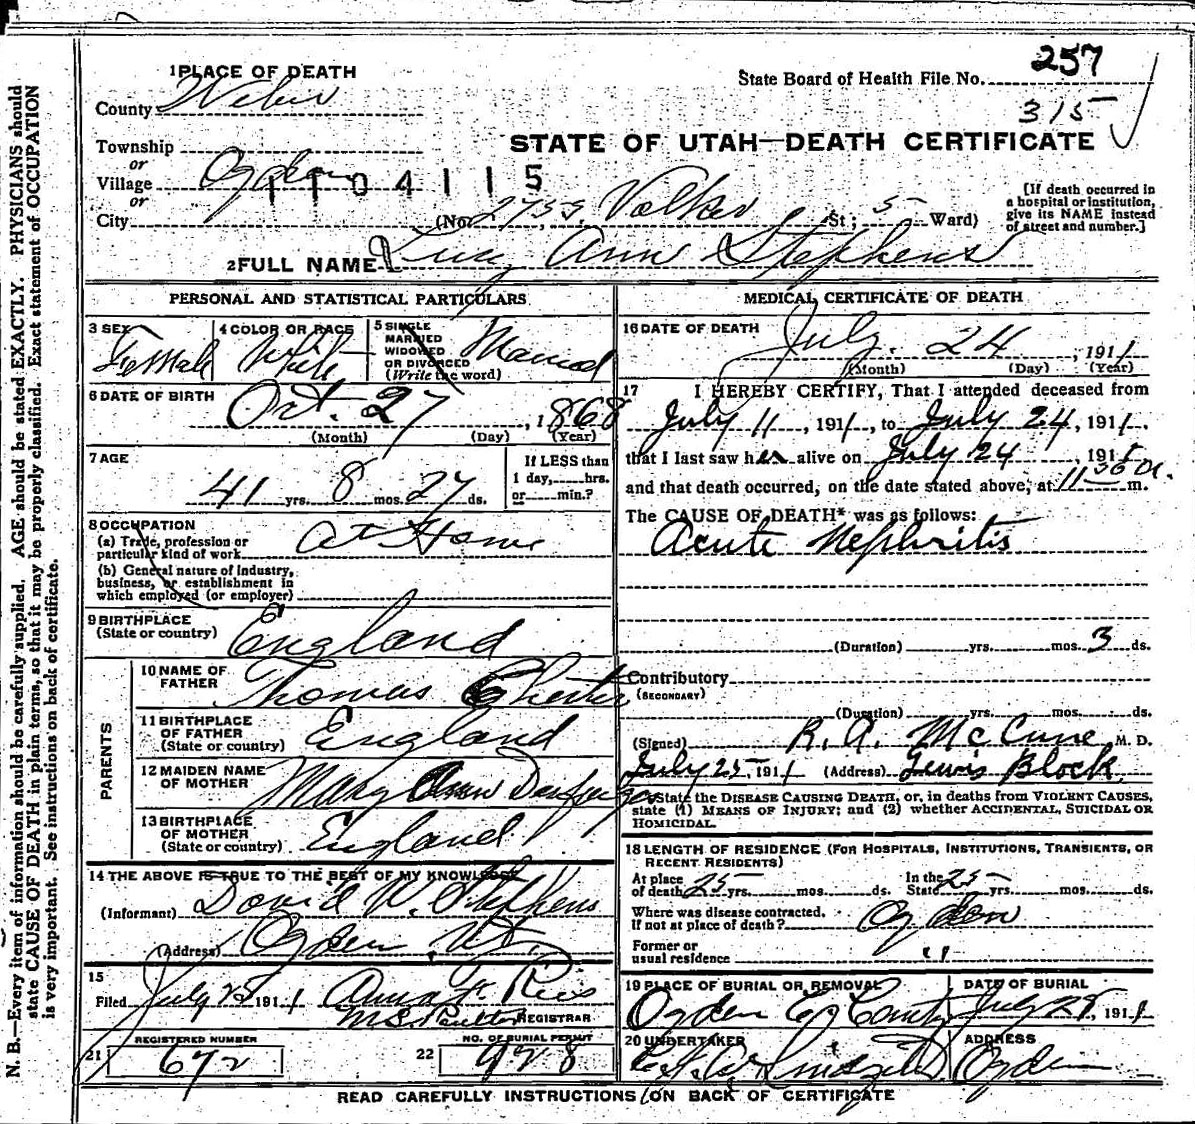 257
State Board of Health File No.
315
1 PLACE OF DEATH
County Weber
STATE OF UTAH—DEATH CERTIFICATE
Township
or
Village Ogden
1104115
or
City (No. 2753 Volker St; 5 Ward)
[If death occurred in a hospital or institution, give its NAME instead of street and number.]
2 FULL NAME Lucy Ann Stephens
PERSONAL AND STATISTICAL PARTICULARS
3 SEX Female
4 COLOR OR RACE White
5 SINGLE MARRIED WIDOWED OR DIVORCED (Write the word) Married
6 DATE OF BIRTH Oct. 27, 1868
(Month) (Day) (Year)
7 AGE 41 yrs. 8 mos. 27 ds.
If LESS than 1 day, hrs. or min.?
8 OCCUPATION
(a) Trade, profession or particular kind of work At Home
(b) General nature of industry, business, or establishment in which employed (or employer)
9 BIRTHPLACE (State or country) England
PARENTS
10 NAME OF FATHER Thomas Chester
11 BIRTHPLACE OF FATHER (State or country) England
12 MAIDEN NAME OF MOTHER Mary Ann
13 BIRTHPLACE OF MOTHER (State or country) England
14 THE ABOVE IS TRUE TO THE BEST OF MY KNOWLEDGE
(Informant) David W. Stephens
(Address) Ogden, Ut,
15
Filed July 25 1911 Anna F.
REGISTRAR
REGISTERED NUMBER
21 672
NO. OF BURIAL PERMIT
22 928
MEDICAL CERTIFICATE OF DEATH
16 DATE OF DEATH July. 24, 1911
(Month) (Day) (Year)
17 I HEREBY CERTIFY, That I attended deceased from
July 11, 1911, to July 24, 1911.
that I last saw her alive on July 24, 1911
and that death occurred, on the date stated above, at 11 30 a. m.
The CAUSE OF DEATH* was as follows:
Acute Nephritis
(Duration) yrs. mos. 3 ds.
Contributory
(SECONDARY)
(Duration) yrs. mos. ds.
(Signed) R. A. McCune M. D.
July 25, 1911 (Address) Lewis Block
State the DISEASE CAUSING DEATH, or, in deaths from VIOLENT CAUSES,
state (1) MEANS OF INJURY; and (2) whether ACCIDENTAL, SUICIDAL OR
HOMICIDAL.
18 LENGTH OF RESIDENCE (FOR HOSPITALS, INSTITUTIONS, TRANSIENTS, OR
RECENT RESIDENTS)
At place of death 25 yrs. mos. ds. In the State 25 yrs. mos. ds.
Where was disease contracted, If not at place of death? Ogden
Former or usual residence "
19 PLACE OF BURIAL OR REMOVAL Ogden City
DATE OF BURIAL July 28, 1911
20 UNDERTAKER
ADDRESS Ogden
READ CAREFULLY INSTRUCTIONS ON BACK OF CERTIFICATE
N. B.—Every item of information should be carefully supplied. AGE should be stated EXACTLY. PHYSICIANS should
state CAUSE OF DEATH in plain terms, so that it may be properly classified. Exact statement of OCCUPATION
is very important. See instructions on back of certificate.